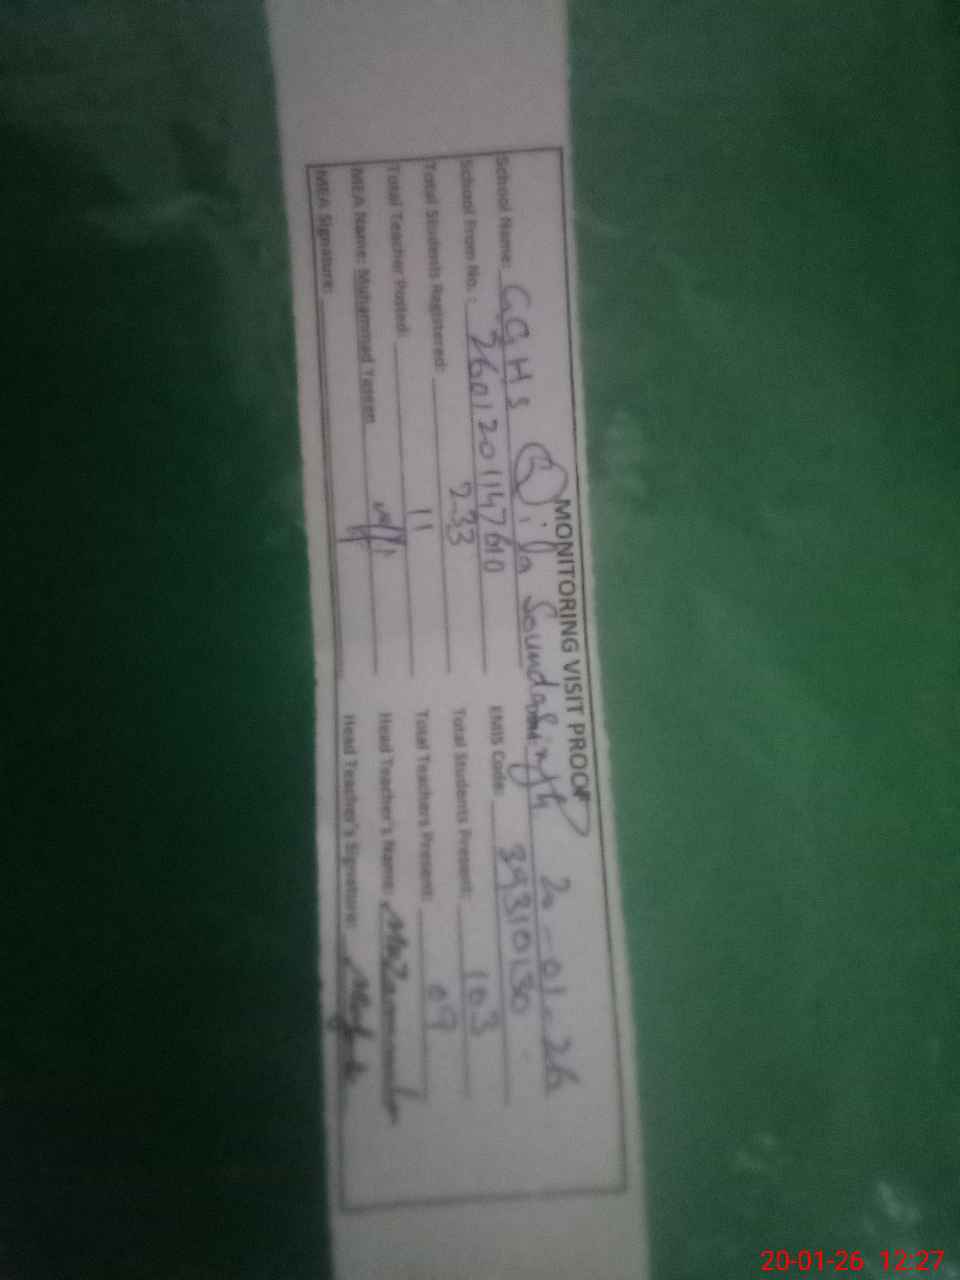 MONITORING VISIT PROOF
School Name: GGHS Qila Sounda Singh 20-01-26
School From No. : 2601201147610 EMIS Code: 39310130
Total Students Registered: 233 Total Students Present: 103
Total Teacher Posted: 11 Total Teachers Present: 09
MEA Name: Muhammad Yaseen Head Teacher's Name:
MEA Signature: Head Teacher's Signature:
20-01-26 12:27